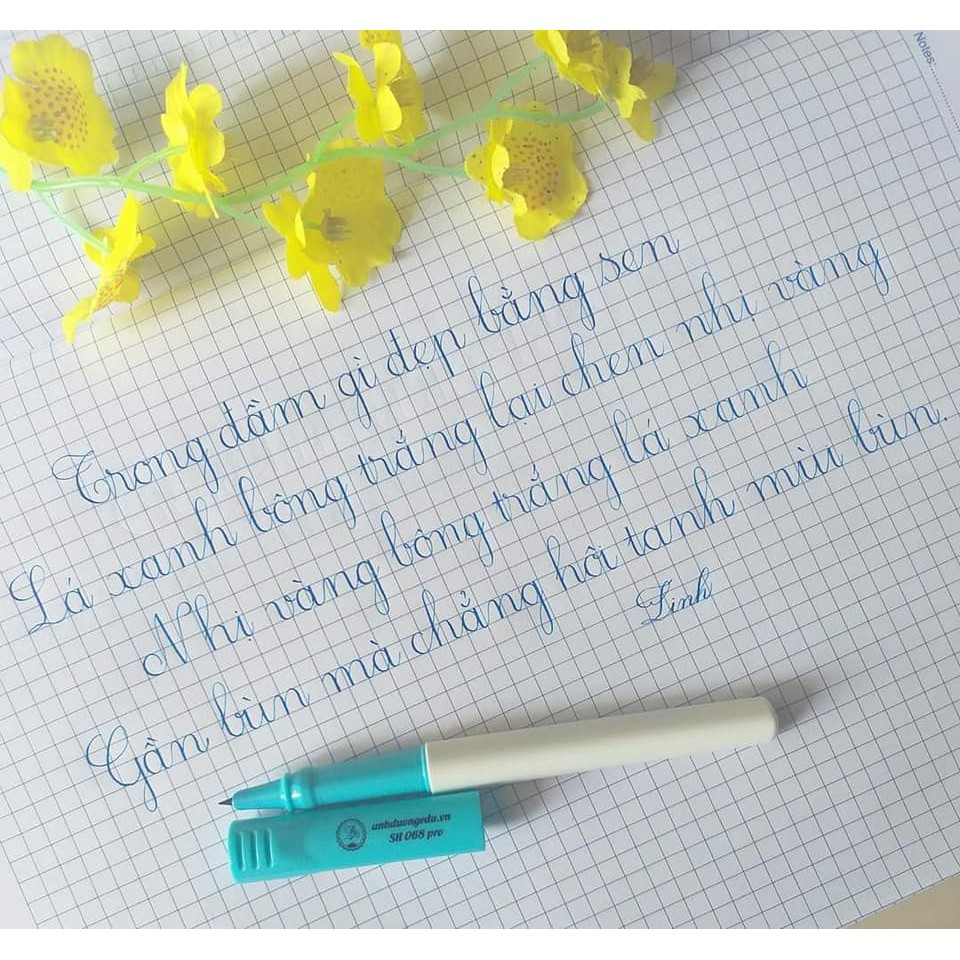 Notes:
Trong đầm gì đẹp bằng sen
Lá xanh bông trắng lại chen nhị vàng
Nhị vàng bông trắng lá xanh
Gần bùn mà chẳng hôi tanh mùi bùn.
Linh
anhduongedu.vn
SH 068 pro